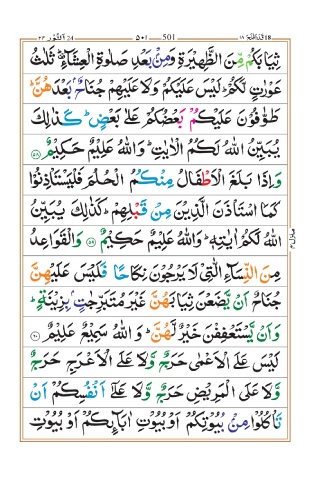 ١٨ قد افلح 18 — ٥٠١ — 501 — النّور 24 ٢٤
ثِيَابَكُمْ مِّنَ الظَّهِيْرَةِ وَمِنْۢ بَعْدِ صَلٰوةِ الْعِشَآءِ ؕ ثَلٰثُ
عَوْرٰتٍ لَّكُمْ ؕ لَيْسَ عَلَيْكُمْ وَلَا عَلَيْهِمْ جُنَاحٌۢ بَعْدَهُنَّ ؕ
طَوّٰفُوْنَ عَلَيْكُمْ بَعْضُكُمْ عَلٰى بَعْضٍ ؕ كَذٰلِكَ
يُبَيِّنُ اللّٰهُ لَكُمُ الْاٰيٰتِ ؕ وَاللّٰهُ عَلِيْمٌ حَكِيْمٌ ﴿٥٨﴾
وَاِذَا بَلَغَ الْاَطْفَالُ مِنْكُمُ الْحُلُمَ فَلْيَسْتَاْذِنُوْا
كَمَا اسْتَاْذَنَ الَّذِيْنَ مِنْ قَبْلِهِمْ ؕ كَذٰلِكَ يُبَيِّنُ
اللّٰهُ لَكُمْ اٰيٰتِهٖ ؕ وَاللّٰهُ عَلِيْمٌ حَكِيْمٌ ﴿٥٩﴾ وَالْقَوَاعِدُ
مِنَ النِّسَآءِ الّٰتِيْ لَا يَرْجُوْنَ نِكَاحًا فَلَيْسَ عَلَيْهِنَّ
جُنَاحٌ اَنْ يَّضَعْنَ ثِيَابَهُنَّ غَيْرَ مُتَبَرِّجٰتٍۭ بِزِيْنَةٍ ؕ
وَاَنْ يَّسْتَعْفِفْنَ خَيْرٌ لَّهُنَّ ؕ وَاللّٰهُ سَمِيْعٌ عَلِيْمٌ ﴿٦٠﴾
لَيْسَ عَلَى الْاَعْمٰى حَرَجٌ وَّلَا عَلَى الْاَعْرَجِ حَرَجٌ
وَّلَا عَلَى الْمَرِيْضِ حَرَجٌ وَّلَا عَلٰٓى اَنْفُسِكُمْ اَنْ
تَاْكُلُوْا مِنْۢ بُيُوْتِكُمْ اَوْ بُيُوْتِ اٰبَآئِكُمْ اَوْ بُيُوْتِ